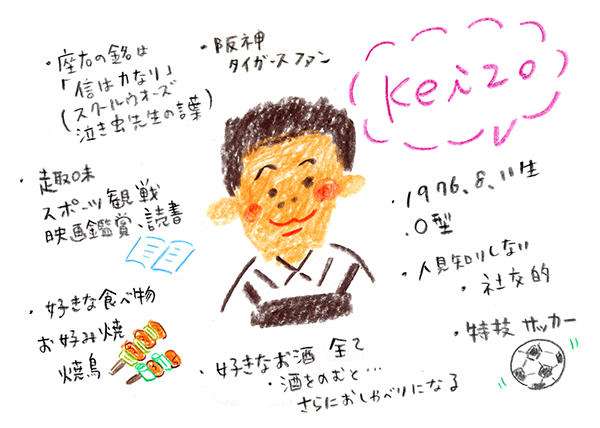 ・座右の銘は
「信は力なり」
(スクールウォーズ
泣き虫先生の言葉)
・阪神
タイガースファン
Keizo
・趣味
スポーツ観戦
映画鑑賞、読書
・1976.8.11生
・O型
・人見知りしない
・社交的
・特技 サッカー
・好きな食べ物
お好み焼
焼鳥
・好きなお酒 全て
・酒をのむと…
さらにおしゃべりになる